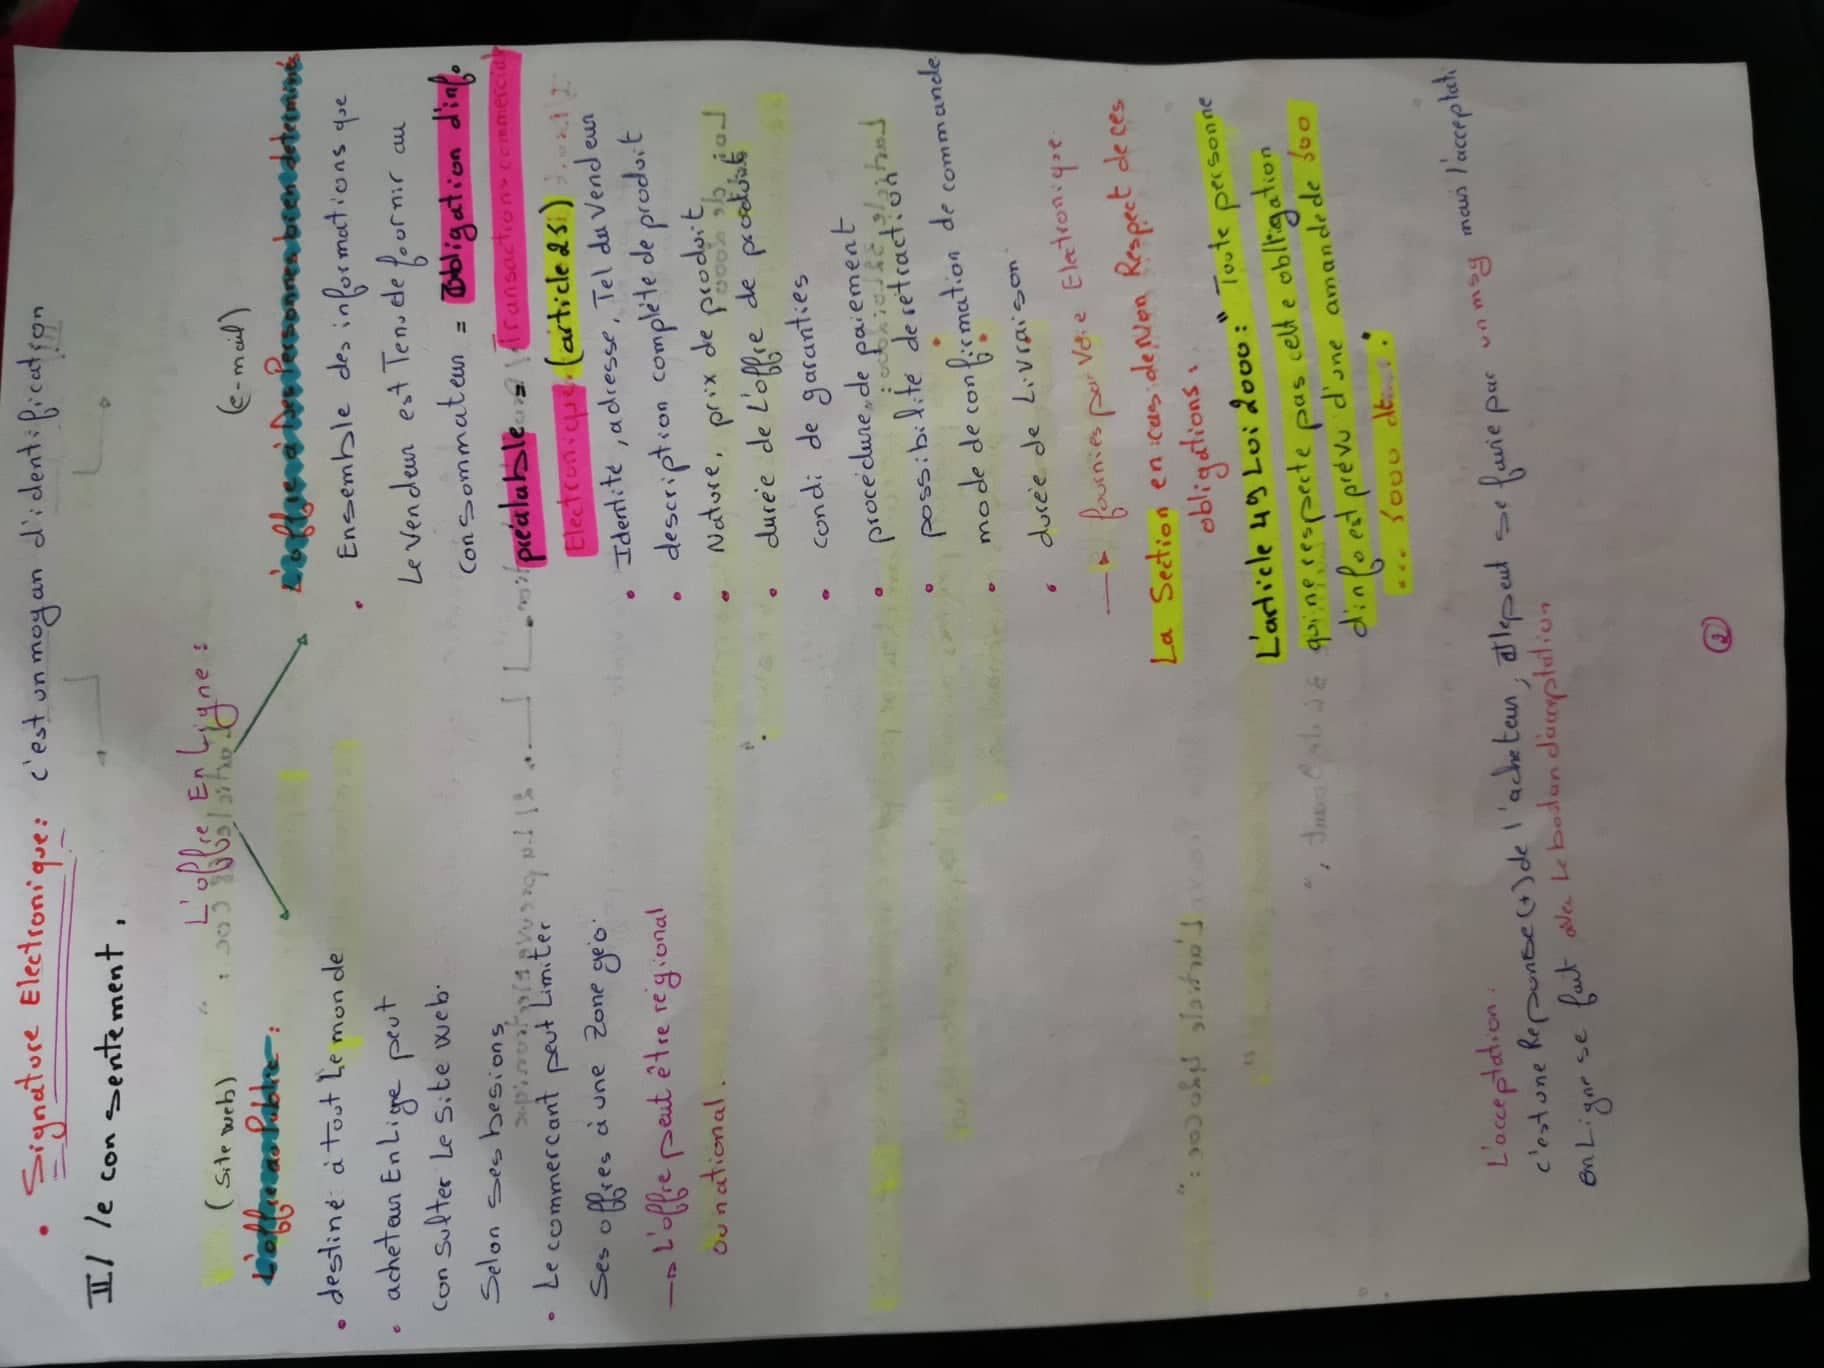 • Signature Electronique: c'est un moyan d'identification
II/ le consentement.
L'offre En Ligne :
(Site web)
L'offre au Public :
• destiné à tout Le monde
• acheteur En Lige peut
consulter Le site web.
Selon ses besions
• Le commercant peut Limiter
Ses offres à une zone géo.
→ L'offre peut être régional
ou national.
(e-mail)
L'offre à des Personnes bien determinés
• Ensemble des informations que
Le vendeur est Tenu de fournir au
consommateur = Obligation d'inf.
préalable = Transactions commercial
Electronique (article 25)
• Identité, adresse, Tel du vendeur
• description complète de produit
• Nature, prix de produit
• durée de L'offre de produit
• condi de garanties
• procédure de paiement
• possibilité de retraction
• mode de confirmation de commande
• durée de Livraison
→ fournies par voie Electronique
La Section en cas de Non Respect de ces
obligations.
L'article 49 Loi 2000: " Toute personne
qui ne respecte pas cette obligation
d'info est prévu d'une amande de 500
... 5000 dt...
L'acceptation.
c'est une Reponse (+) de l'acheteur, elle peut se faire par un msg mais l'acceptati
en Ligne se fait avec Le bouton d'acceptation
2